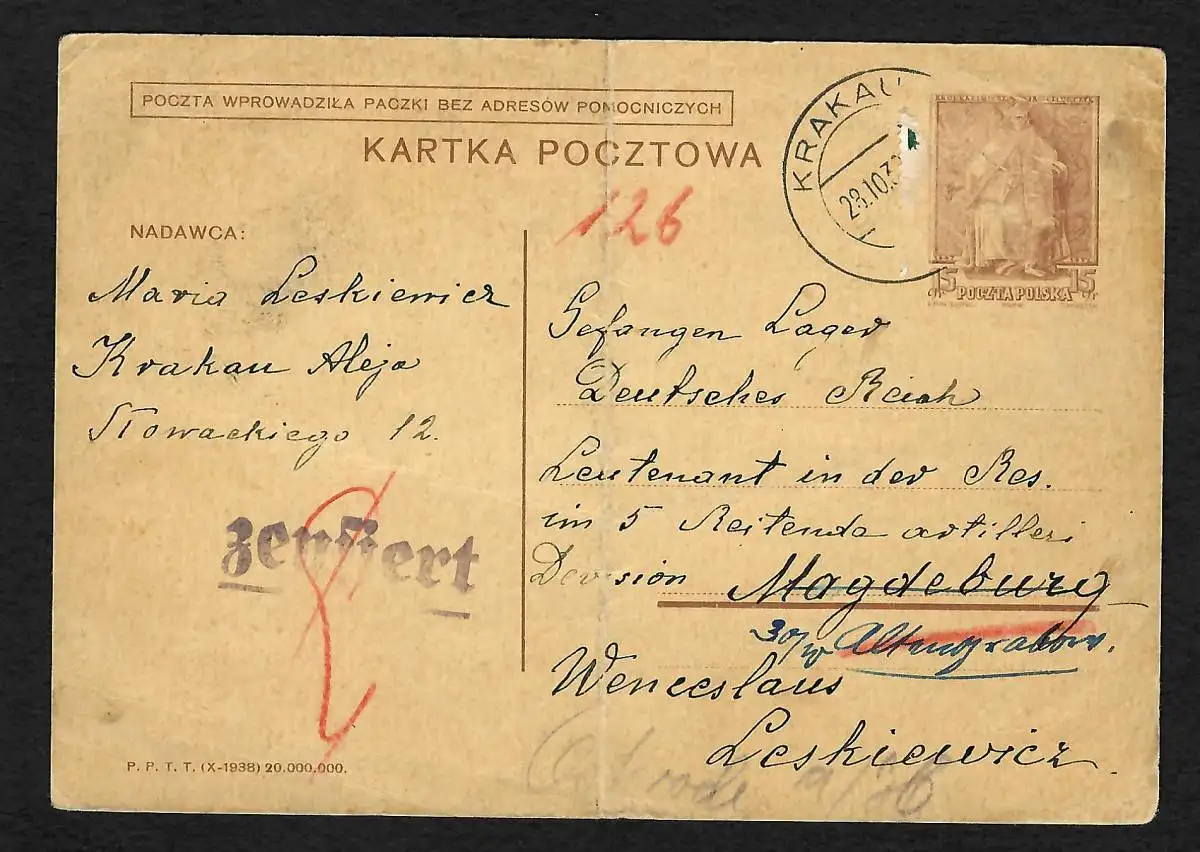 POCZTA WPROWADZIŁA PACZKI BEZ ADRESÓW POMOCNICZYCH
KARTKA POCZTOWA
KRAKAU
28.10.39
15 POCZTA POLSKA 15
126
NADAWCA:
Maria Leskiewicz
Krakau Aleja
Słowackiego 12.
zensiert
Gefangen Lager
Deutsches Reich
Leutenant in der Res.
im 5 Reitende artilleri
Devision Magdeburg
Altengrabow.
Wenceslaus
Leskiewicz
P. P. T. T. (X-1938) 20.000.000.